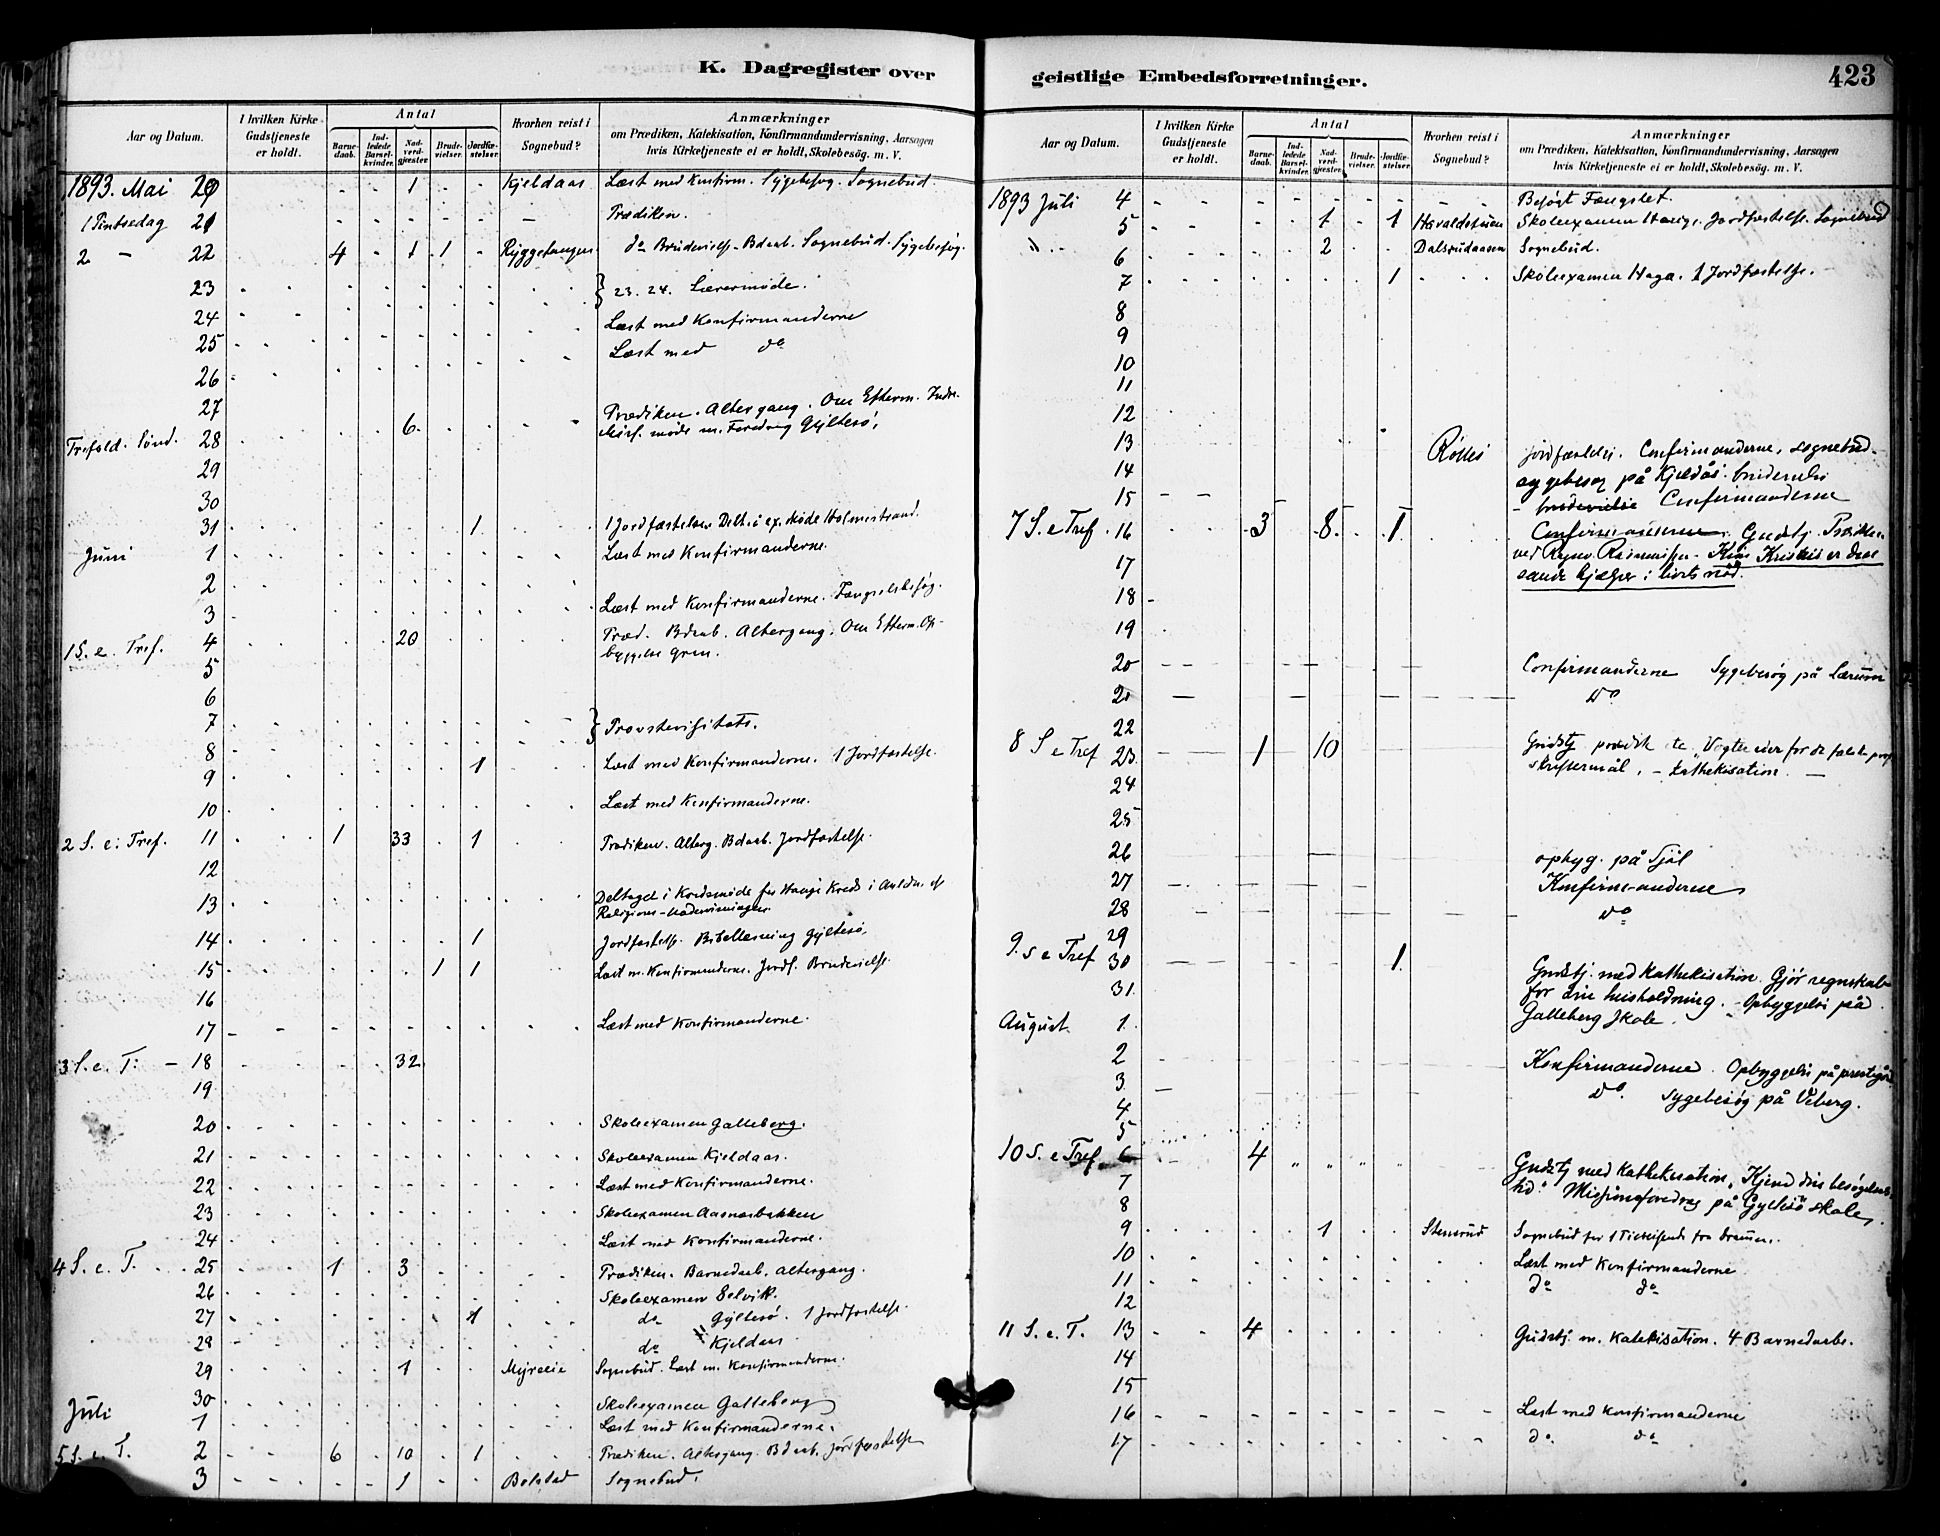 K. Dagregister over
geistlige Embedsforretninger.
423
Aar og Datum.
I hvilken Kirke Gudstjeneste er holdt.
Antal
Barnedaab.
Indledede Barselkvinder.
Nadverdgjester.
Brudevielser.
Jordfæstelser.
Hvorhen reist i Sognebud?
Anmærkninger
om Prædiken, Katekisation, Konfirmandundervisning, Aarsagen
hvis Kirketjeneste ei er holdt, Skolebesög. m. V.
1893. Mai 20 1 Kjeldaas Læst med Konfirm. Sygebesøg. Sognebud.
1 Pintsedag 21 Prædiken.
2 – 22 4 1 1 Ryggetangen do Brudevielse. Bdaab. Sognebud. Sygebesøg.
23 } 23. 24. Lærermøde.
24 Læst med Konfirmanderne
25 Læst med do
26
27 Prædiken. Altergang. Om Efterm. Indre
Trefold. Sönd. 28 6. Miss. møde m. Foredrag Gyltesö.
29
30
31 1 1 Jordfæstelse. Delt. i møde Holmestrand.
Juni 1 Læst med Konfirmanderne.
2
3 Læst med Konfirmanderne. Fængselsbesøg.
1 S. e. Tref. 4 20 Præd. Bdaab. Altergang. Om Efterm. Op-
byggelse
5
6
7 } Provstevisitats.
8
9 1 Læst med Konfirmanderne. 1 Jordfæstelse.
10 Læst med Konfirmanderne.
2 S. e. Tref. 11 1 33 1 Prædiken. Alterg. Bdaab. Jordfæstelse.
12
13 Deltaget i Kredsmøde for Kreds i
Religions-Undervisningen
14 1 Jordfæstelse. Bibellæsning Gyltesö.
15 1 1 Læst m. Konfirmanderne. Jordf. Brudevielse.
16
17 Læst med Konfirmanderne.
3 S. e. T. – 18 32
19
20 Skoleexamen Galleberg.
21 Skoleexamen Kjeldaas.
22 Læst med Konfirmanderne.
23 Skoleexamen Aasnæsbakken
24 Læst med Konfirmanderne.
4 S. e. T. 25 1 3 Prædiken. Barnedaab. Altergang.
26 Skoleexamen Selvik.
27 1 do Gyltesö. 1 Jordfæstelse.
28 do Kjeldaas
29 1 Myreeie Sognebud. Læst m. Konfirmanderne.
30 Skoleexamen Galleberg
Juli 1 Læst med Konfirmanderne.
5 S. e. T. 2 6 10 1 Prædiken. Altergang. Bdaab. Jordfæstelse
3 1 Bolstad Sognebud.
Aar og Datum.
I hvilken Kirke Gudstjeneste er holdt.
Antal
Barnedaab.
Indledede Barselkvinder.
Nadverdgjester.
Brudevielser.
Jordfæstelser.
Hvorhen reist i Sognebud?
Anmærkninger
om Prædiken, Katekisation, Konfirmandundervisning, Aarsagen
hvis Kirketjeneste ei er holdt, Skolebesög. m. V.
1893 Juli 4 Besøgt Fængslet.
5 1 1 Haraldstuen Skoleexamen Hange. Jordfæstelse. Sognebud
6 2 Dalsrudaasen Sognebud.
7 1 Skoleexamen Haga. 1 Jordfæstelse.
8
9
10
11
12
13 jordfæstelse. Confirmanderne, sognebud-
14 sygebesøg på Kjeldås. brudevielse
15 – brudevielse Confirmanderne
7 S. e Tref. 16 3 8 1 Confirmanderne. Gudstj.
17 ved Kun Kristus er den
sande hjælper i livets nød.
18
19
20 Confirmanderne Sygebesøg på Lærum
20 do
22
8 S e Tref 23 1 10 Gudstj prædik te "Vogter eder for de falske prof
skriftermål. – kathekisation. –
24
25
26 opbyg. på Sjøl
27 Konfirmanderne
28 do
29
9. S e Tref 30 1. Gudstj. med kathekisation. Gjør regnskab
31 for din husholdning. – Opbyggelse på
August 1. Galleberg Skole.
2 Konfirmanderne. Opbyggelse på præstegård
3 do. Sygebesøg på Viberg.
4
5
10 S. e Tref. 6 4 Gudstj med kathekisation, Kjend din besøgelses-
7 tid." Missionsforedrag på Gyltesö skole.
8
9 1 Stensrud Sognebud for 1
10 Læst med Konfirmanderne
11 do do
12
11 S. e. T. 13 4 Gudstj. m. Katekisation. 4 Barnedaab.
14
15
16 Læst med Konfirmanderne
17 do. do